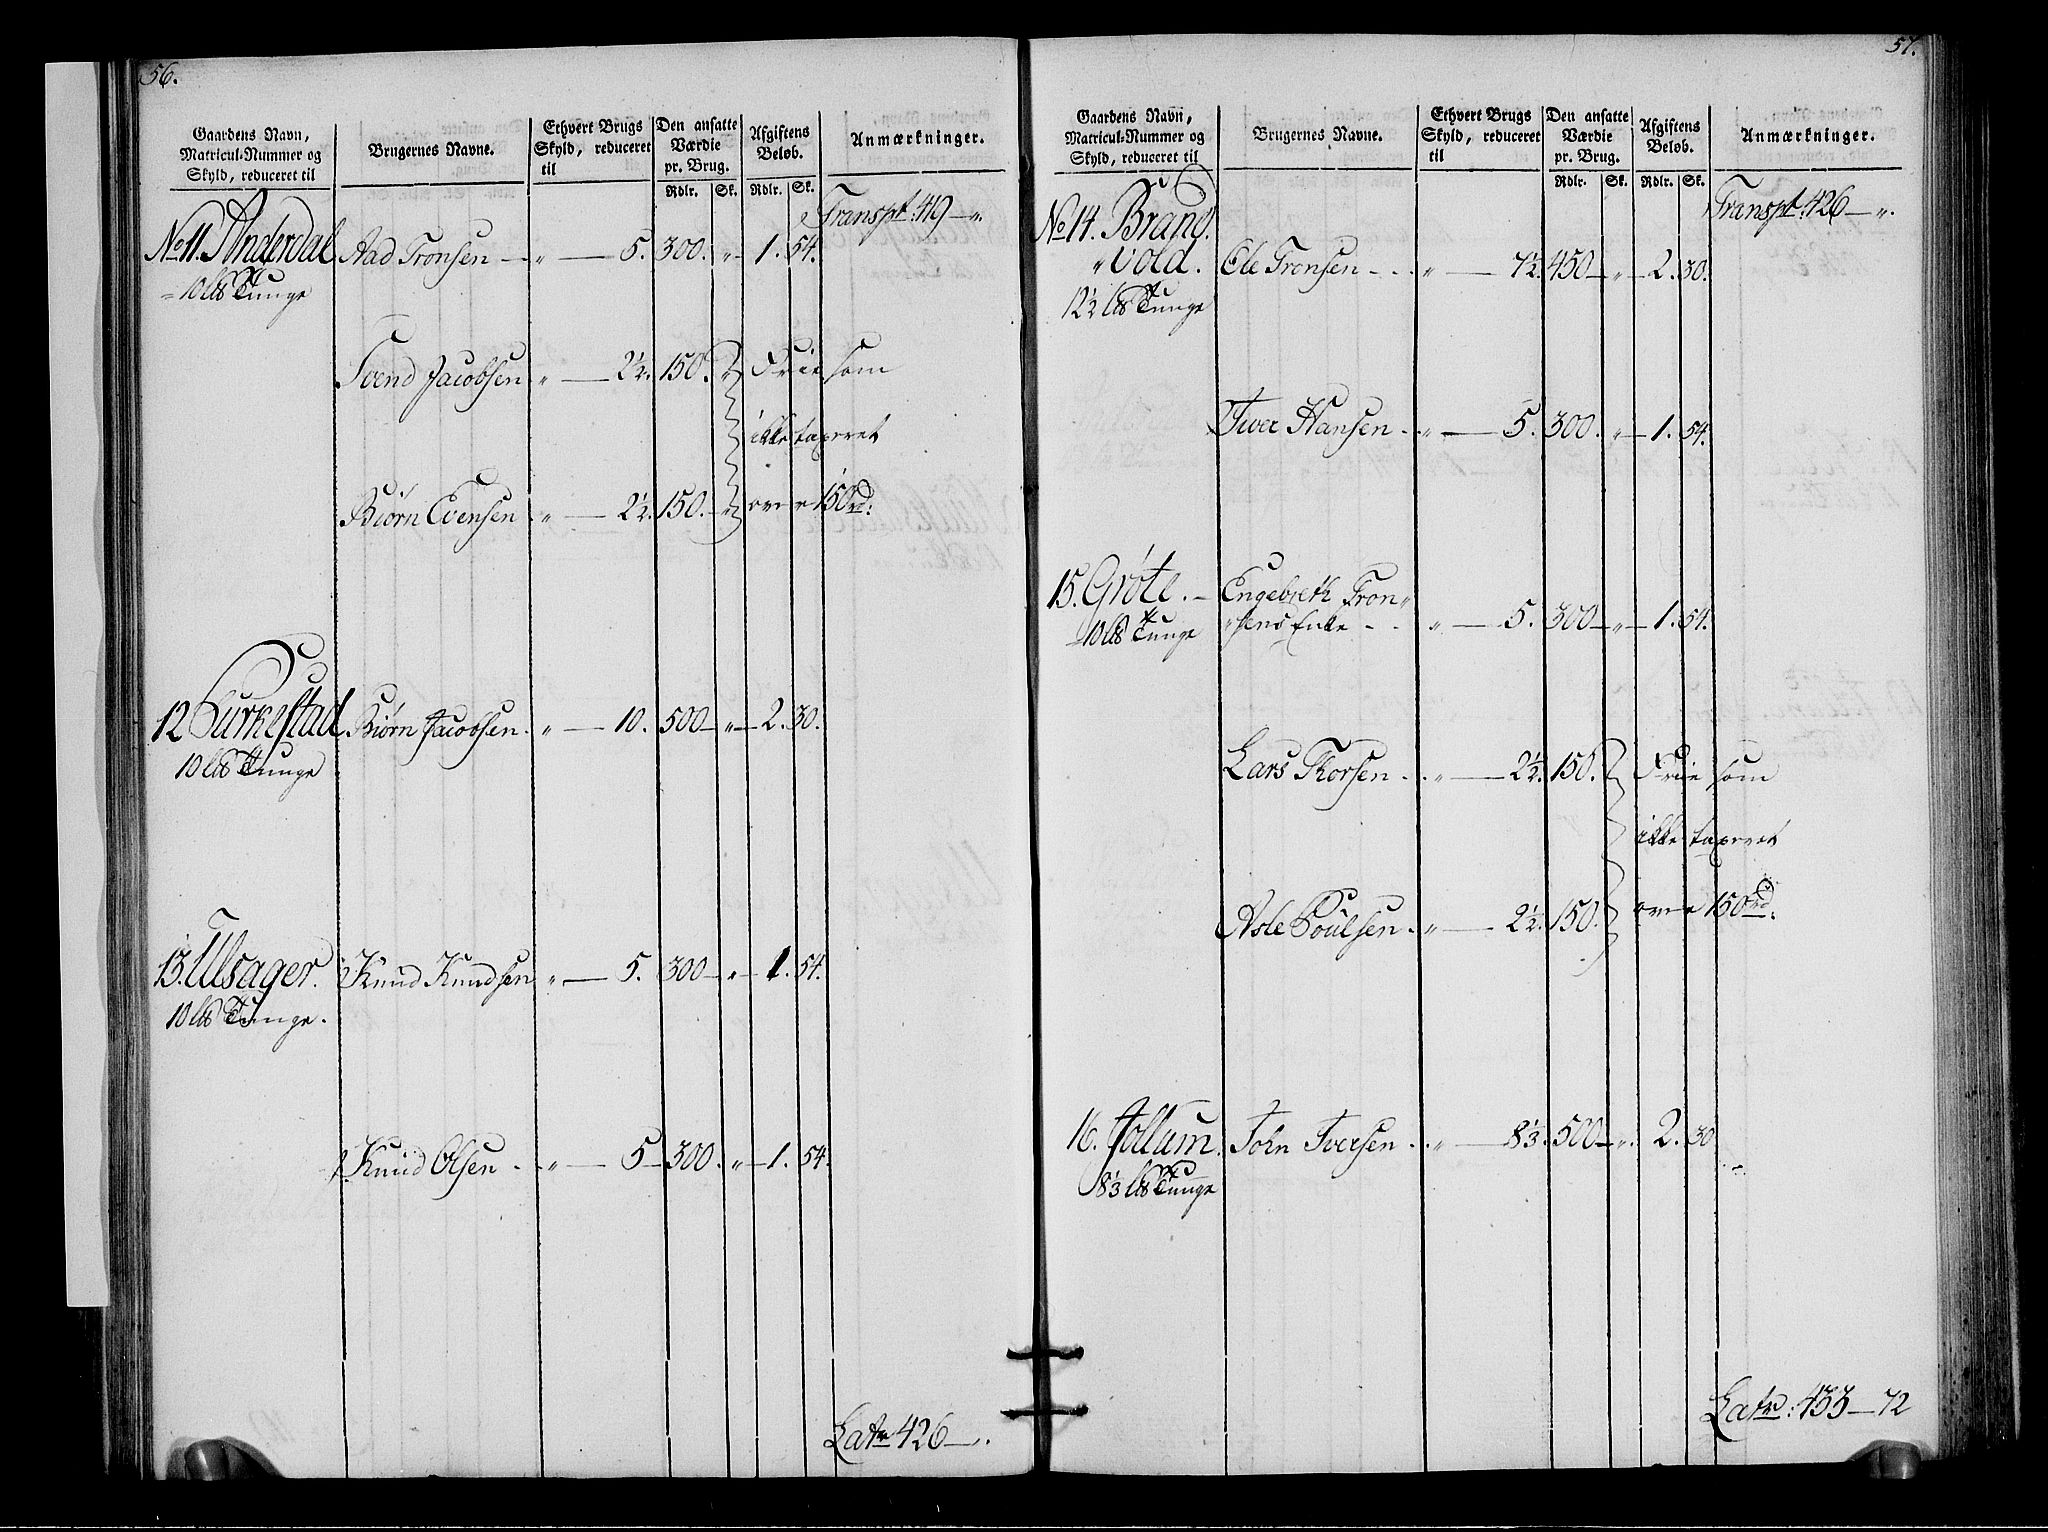 56.
Gaardens Navn, Matricul-Nummer og Skyld, reduceret til
Brugernes Navne.
Ethvert Brugs Skyld, reduceret til
Den ansatte Værdie pr. Brug.
Afgiftens Beløb.
Anmærkninger.
Rdlr. Sk. Rdlr. Sk.
Transpt: 419 — „.
No 11. Anderdal Aad Tronsen — „ — 5. 300. „ 1. 54.
10 Tunge
Svend Jacobsen „ — 2½. 150. „ Frie som
ikke taxeret
Biørn Evensen „ — 2½. 150. — „ over 150 rd:
12 Turkestad Biørn Jacobsen. „ — 10. 500 — „ — 2. 30.
10 Tunge
13. Ulsager. Knud Knudsen „ — 5. 300 — „ — 1. 54.
10 Tunge.
Knud Olsen — „ — 5 — 300. „ — 1. 54.
Latr 426 — „.
57.
Gaardens Navn, Matricul-Nummer og Skyld, reduceret til
Brugernes Navne.
Ethvert Brugs Skyld, reduceret til
Den ansatte Værdie pr. Brug.
Afgiftens Beløb.
Anmærkninger.
Rdlr. Sk. Rdlr. Sk.
Transpt: 426 — „.
No 14. Brand
„vold. Ole Tronsen - - . „ — 7½ 450 — „ — 2. 30.
12½ Tunge
Iver Hansen . . „ — 5. 300. „ — 1. 54.
15. Grøte. — Engebreth Tron„
„sens Enke - . „ — 5. 300 — „ — 1. 54.
10 Tunge
Lars Thorsen . . „ — 2½. 150. Frie som
ikke taxeret
Asle Poulsen . „ — 2½. 150. over 150 rd.
16. Jollum. John Iversen . . „ — 8⅓. 500 — „. 2. 30
8⅓ Tunge
Latr: 433 — 72